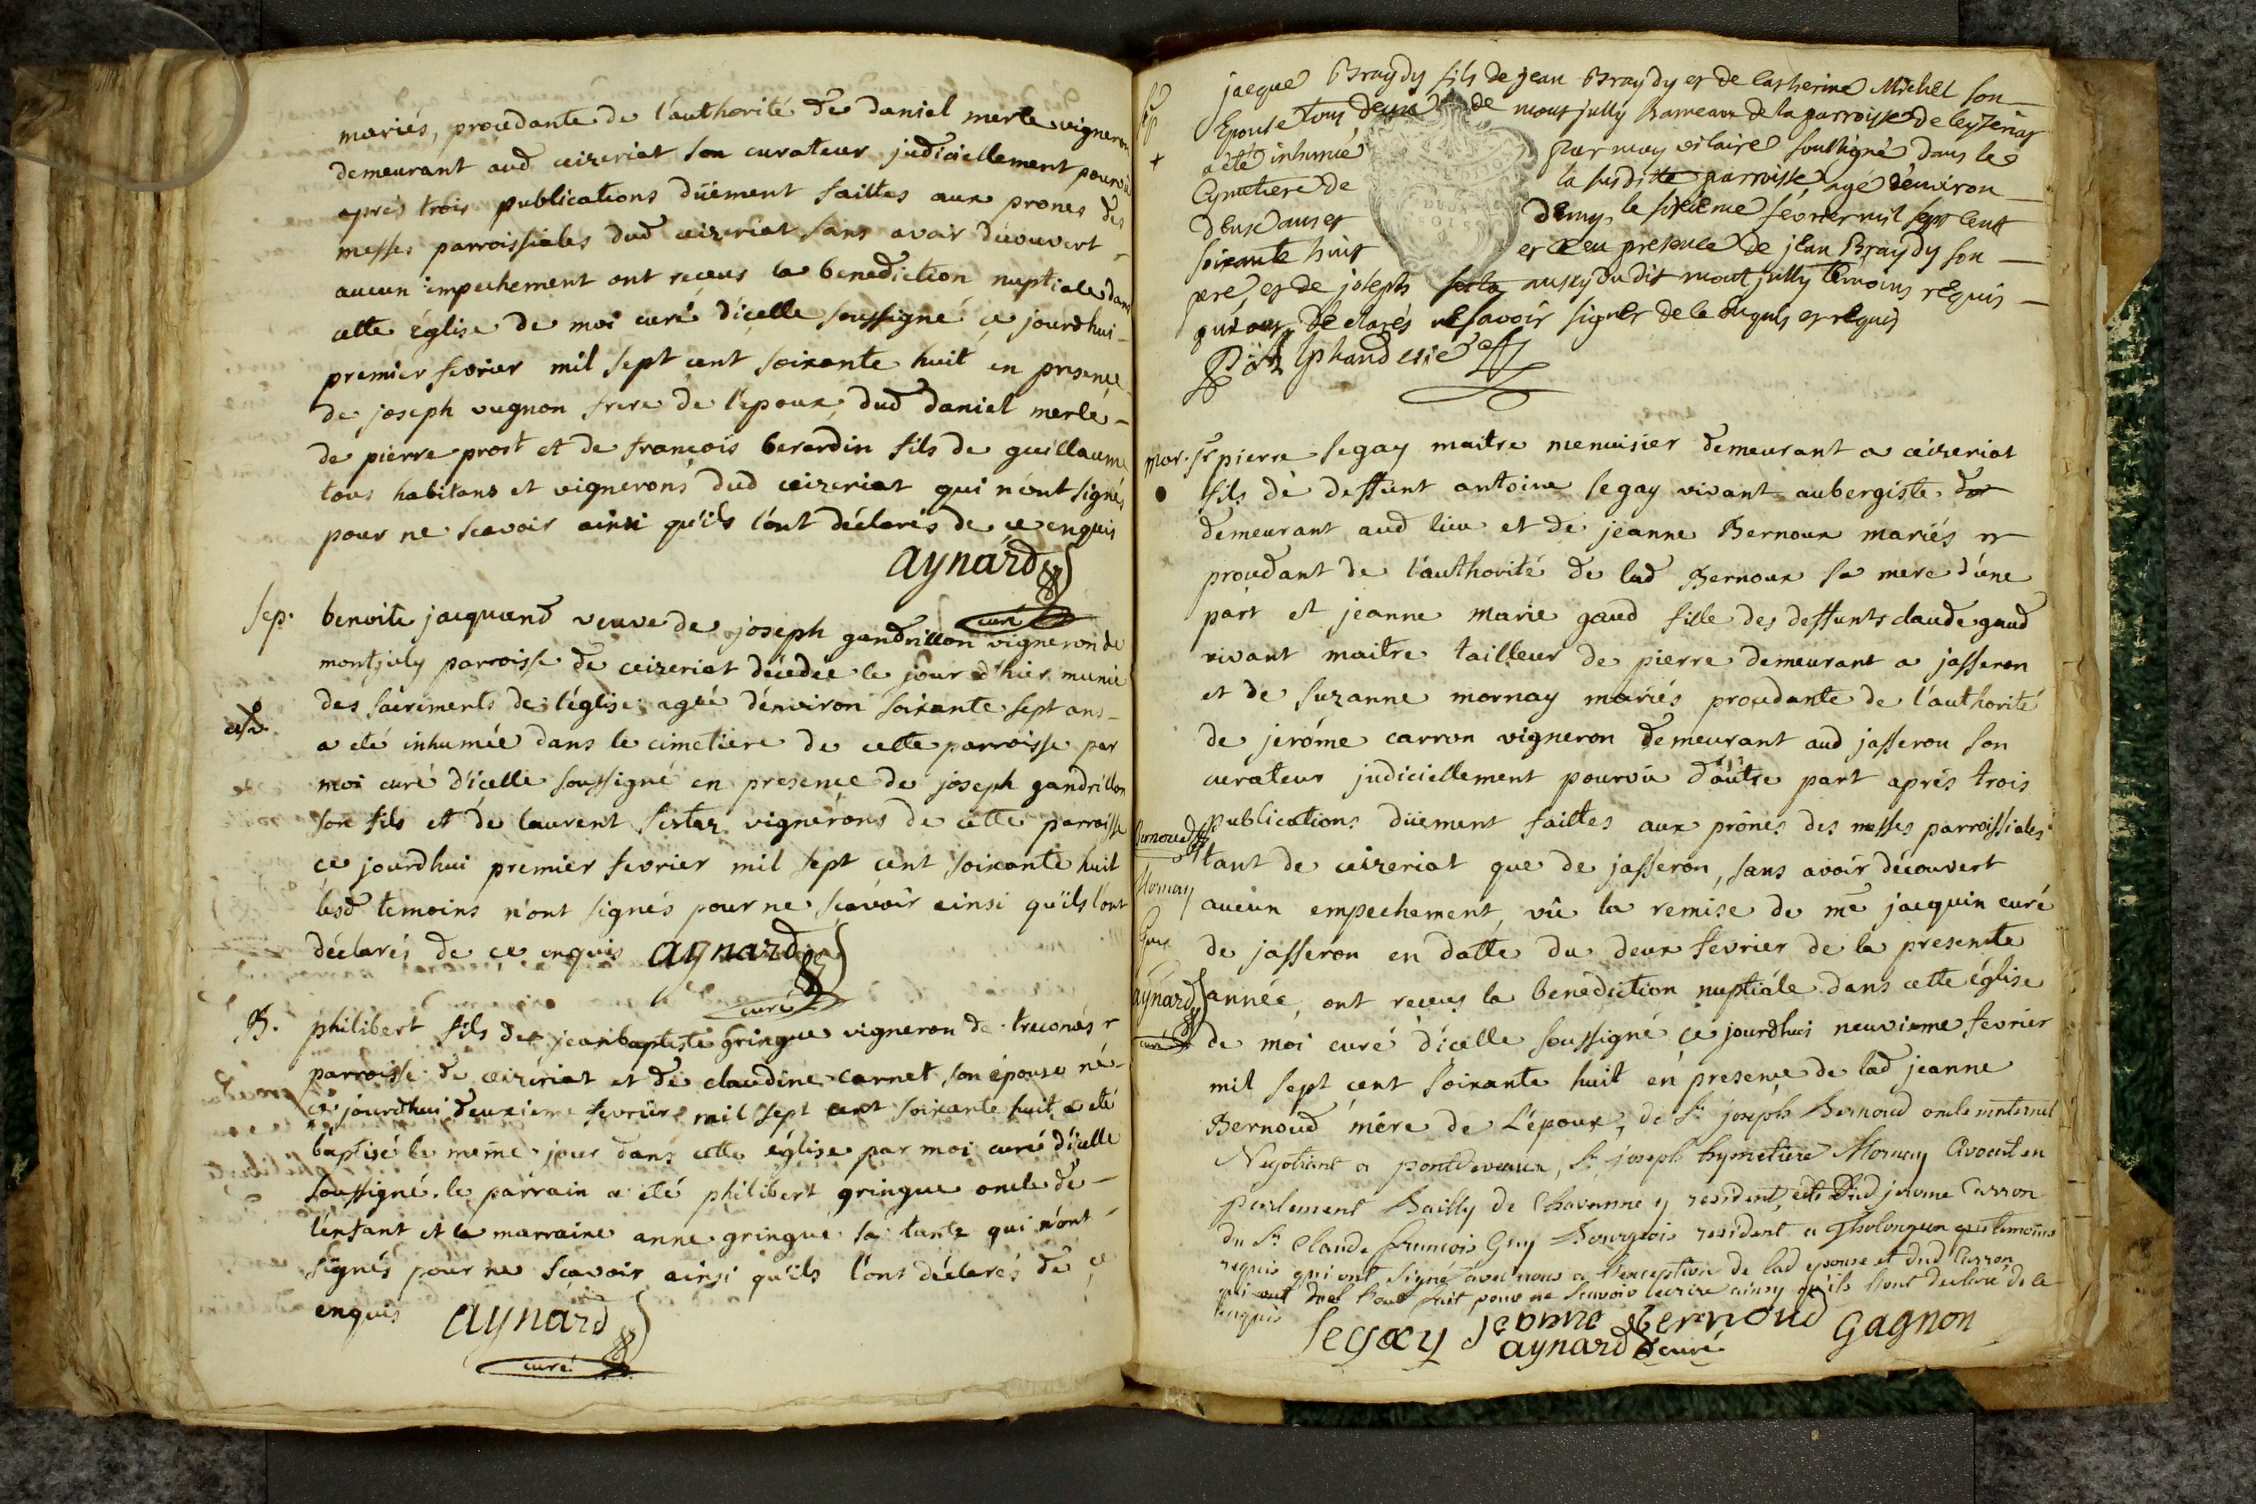 mariés, procedante de l'authorité de daniel merle vigneron
demeurant aud ceizeriat son curateur judiciellement pourvû
aprés trois publications düement faittes aux prones des
messes parroissiales dud ceizeriat sans avoir découvert
aucun empechement ont receus la benediction nuptiale dans
cette église de moi curé d'icelle soussigné ce jourdhui
premier fevrier mil sept cent soixante huit en presence
de joseph vugnon frere de l'epoux, dud daniel merle
de pierre prost et de françois berardin fils de guillaume
tous habitans et vignerons dud ceizeriat qui n'ont signés
pour ne scavoir ainsi qu'ils l'ont déclarés de ce enquis
aynard
curé
sep. benoite jacquand veuve de joseph gandrillon vigneron de
montjuly parroisse de ceizeriat décédée le jour d'hier munie
des sacrements de l'église agée d'environ soixante sept ans
a eté inhumée dans le cimetiere de cette parroisse par
moi curé d'icelle soussigné en presence de joseph gandrillon
son fils et de laurent vignérons de cette parroisse
ce jourdhui premier fevrier mil sept cent soixante huit
lesd temoins n'ont signés pour ne scavoir ainsi qu'ils l'ont
déclarés de ce enquis aynard
curé
B. philibert fils de jeanbaptiste gringue vigneron de
parroisse de ceizeriat et de claudine carnet son épouse né
ce jourdhui deuxieme fevrier mil sept cent soixante huit a eté
baptisé le meme jour dans cette église par moi curé d'icelle
soussigné. le parrain a eté philibert gringue oncle de
l'enfant et la marraine anne gringue sa tante qui n'ont
signés pour ne scavoir ainsi qu'ils l'ont déclarés de ce
enquis aynard
curé
sep jacque Braydy fils de jean Braydy et de Catherine Michel son
Epouse tous deux de mont jully hameaux de la parroisse de
a été inhumé par moy vicaire soussigné dans le
Cymetiere de la susditte parroisse, agé d'environ
deux ans et demy, le sixième fevrier mil sept cent
soixante huit et ce en presence de jean Braydy son
pere, et de joseph aussy dudit mont jully temoins requis
qui ont declarés ne savoir signer de ce enquis et requis
mar. sr pierre legay maitre menuisier demeurant a ceizeriat
fils de deffunt antoine legay vivant aubergiste
demeurant aud lieu et de jeanne Bernoux mariés
procedant de l'authorité de lad Bernoux sa mere d'une
part et jeanne marie gaud fille des deffunts claude gaud
vivant maitre tailleur de pierre demeurant a jasseron
et de suzanne mornay mariés procedante de l'authorité
de jerôme carron vigneron demeurant aud jasseron son
curateur judiciellement pourvû d'autre part aprés trois
publications düement faittes aux prônes des messes parroissiales
tant de ceizeriat que de jasseron, sans avoir découvert
aucun empechement, vû la remise de me jacquin curé
de jasseron en datte du deux fevrier de la presente
année, ont receus la benédiction nuptiale dans cette église
de moi curé d'icelle soussigné ce jourdhui neuvieme fevrier
mil sept cent soixante huit en presence de lad jeanne
Bernoud mére de l'époux, de Sr joseph Bernoud oncle maternel
Negotiant a pontdevaux, Sr joseph hymetiere Mornay Avocat en
parlement Bailly de Chavanne y resident, dud jerome Carron
du Sr Claude francois Guy Bourgeois resident a temoins
requis qui ont signé avec nous a l'exception de lad epouse et dud Carron
qui fait pour ne scavoir ecrire ainsy qu'ils l'ont declaré de ce
enquis
Mornay
Guy
aynard
curé
legay jeanne bernoud Gagnon
aynard curé